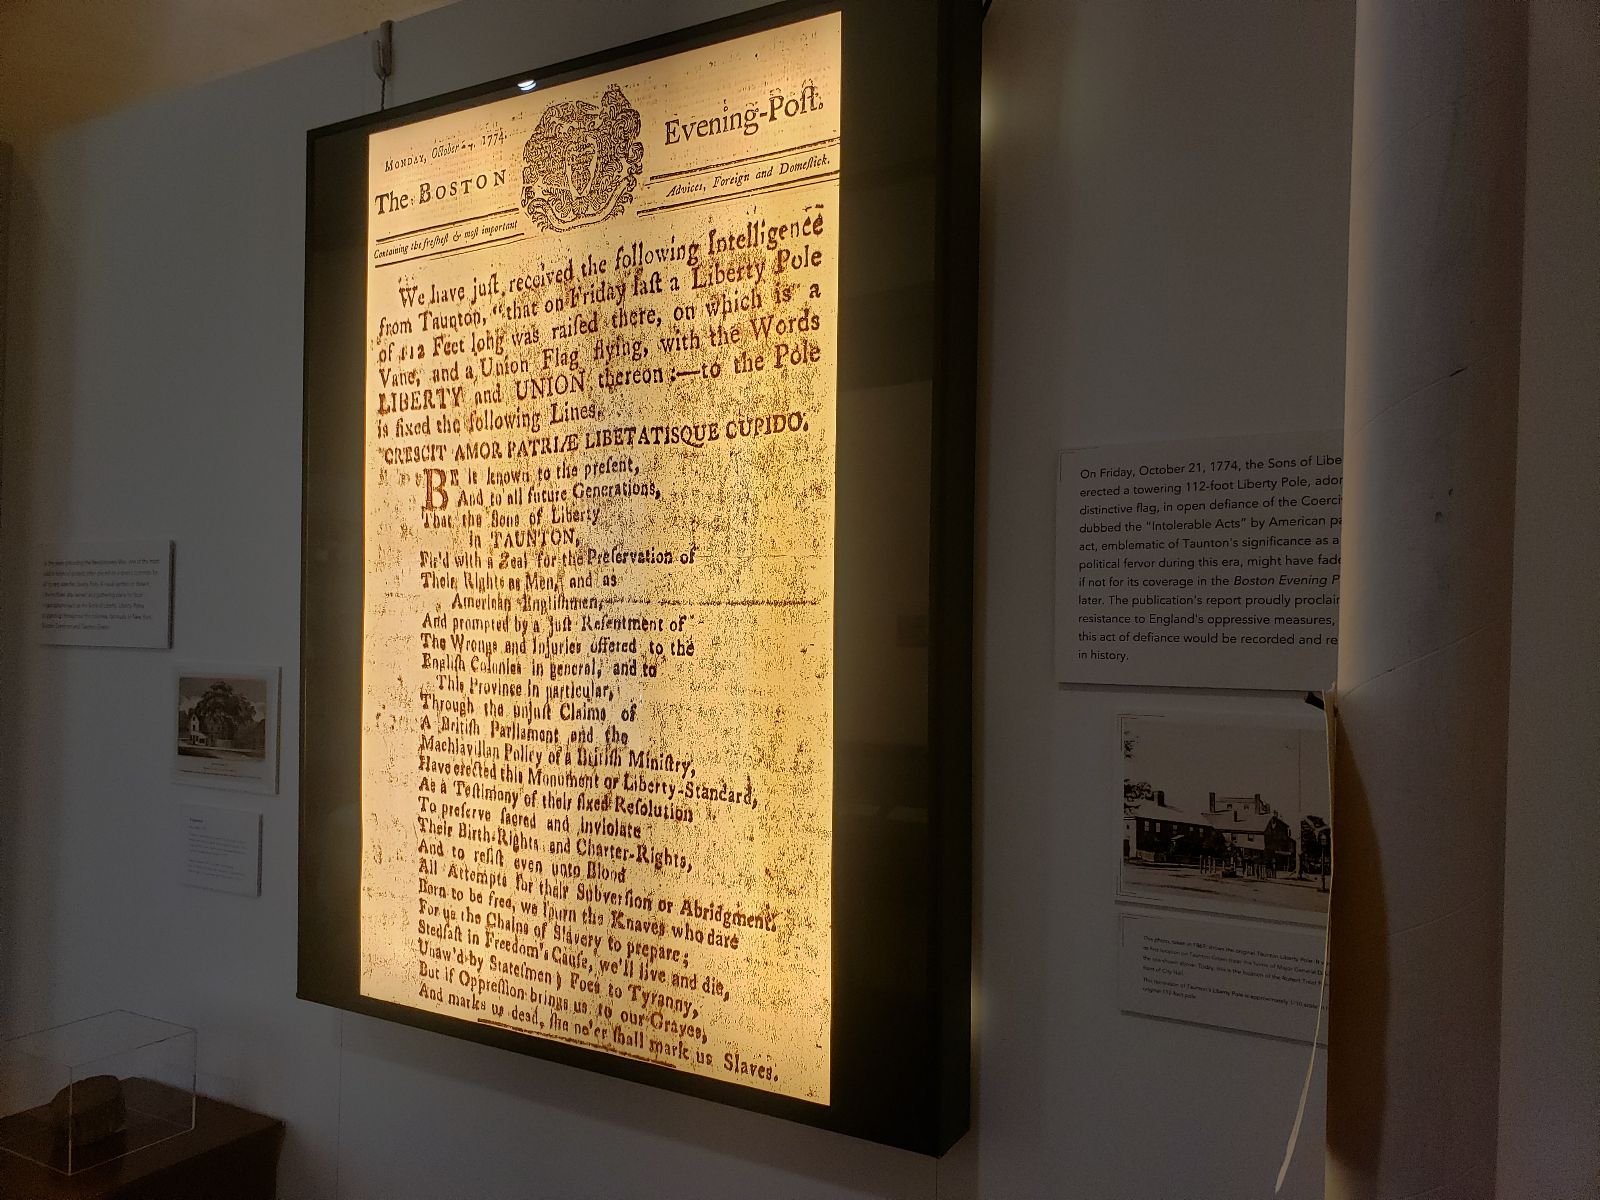 MONDAY, October 24, 1774.
The BOSTON
Evening-Poſt.
Containing the freſheſt & moſt important
Advices, Foreign and Domeſtick.
We have juſt received the following Intelligence
from Taunton, "that on Friday laſt a Liberty Pole
of 112 Feet long was raiſed there, on which is a
Vane, and a Union Flag flying, with the Words
LIBERTY and UNION thereon:—to the Pole
is fixed the following Lines.
"CRESCIT AMOR PATRIÆ LIBETATISQUE CUPIDO.
BE it known to the preſent,
And to all future Generations,
That the Sons of Liberty
in TAUNTON,
Fir'd with a Zeal for the Preſervation of
Their Rights as Men, and as
American Engliſhmen,
And prompted by a Juſt Reſentment of
The Wrongs and Injuries offered to the
Engliſh Colonies in general, and to
This Province in particular,
Through the unjuſt Claims of
A Britiſh Parliament and the
Machiavilian Policy of a Britiſh Miniſtry,
Have erected this Monument or Liberty-Standard,
As a Teſtimony of their fixed Reſolution
To preſerve ſacred and inviolate
Their Birth-Rights and Charter-Rights,
And to reſiſt even unto Blood
All Attempts for their Subverſion or Abridgment.
Born to be free, we ſpurn the Knaves who dare
For us the Chains of Slavery to prepare;
Stedfaſt in Freedom's Cauſe, we'll live and die,
Unaw'd by Stateſmen; Foes to Tyranny,
But if Oppreſſion brings us to our Graves,
And marks us dead, ſhe ne'er ſhall mark us Slaves.
On Friday, October 21, 1774, the Sons of Libe
erected a towering 112-foot Liberty Pole, ador
distinctive flag, in open defiance of the Coerci
dubbed the "Intolerable Acts" by American pa
act, emblematic of Taunton's significance as a
political fervor during this era, might have fade
if not for its coverage in the Boston Evening P
later. The publication's report proudly proclai
resistance to England's oppressive measures,
this act of defiance would be recorded and re
in history.